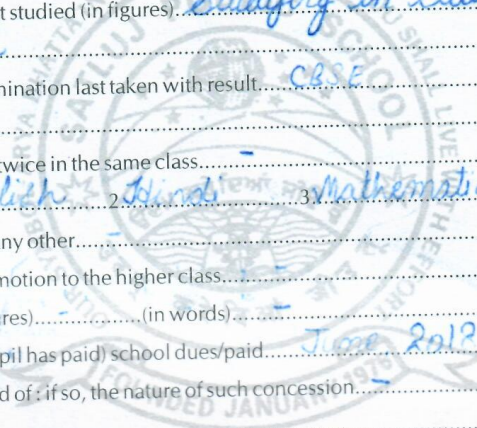 t studied (in figures)... Studying in
nination last taken with result.... CBSE
twice in the same class.... -
lish 2 Hindi 3 Mathemati
ny other.... -
motion to the higher class.... -
res)...-...(in words)... -
pil has paid) school dues/paid.... June 2018
d of : if so, the nature of such concession... -
SATLUJ SCHOOL
SHALL LIVE
FOUNDED JANUARY 1976